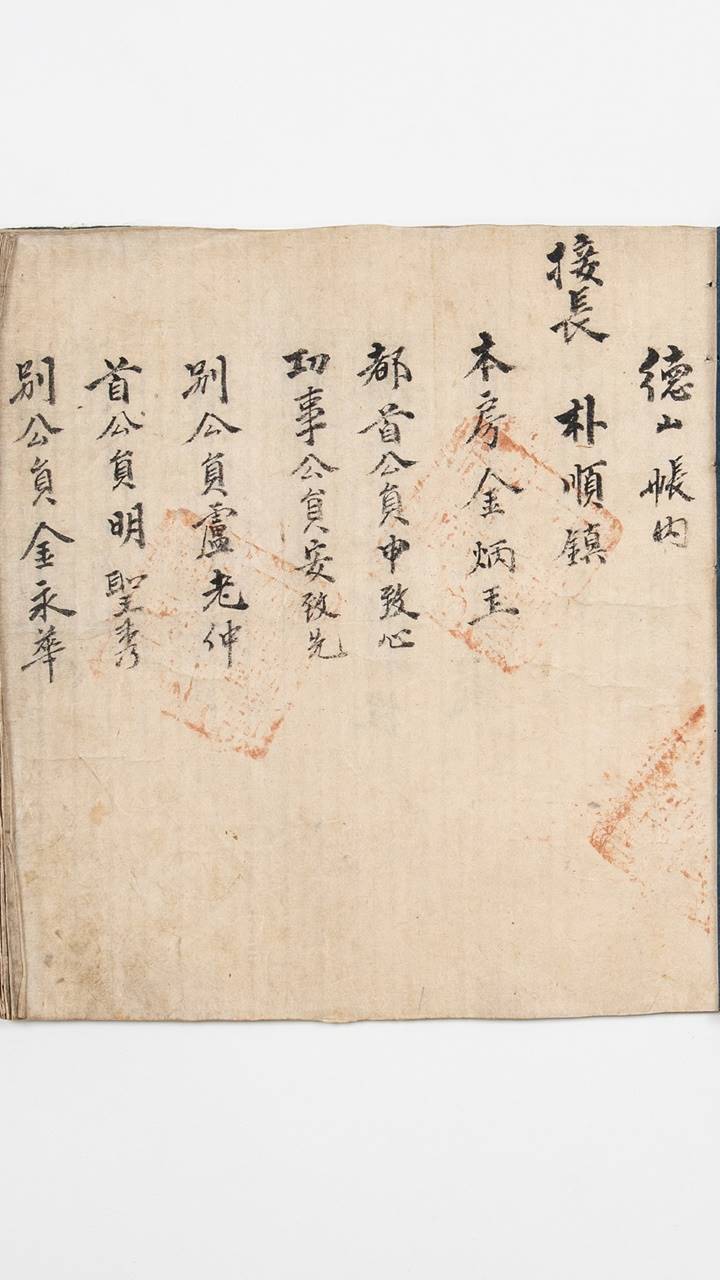 德山帳內
接長 朴順鎮
本房金炳玉
都首公員申致心
功事公員安致先
別公員盧老仲
首公員明聖秀
別公員金永華